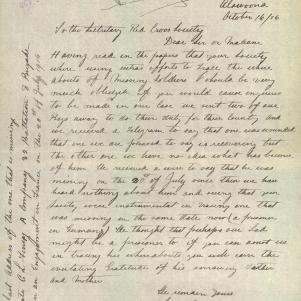 Alawoona
October 16/16
To the Secretary Red Cross Society
Dear Sir or Madame
Having read in the papers that your society
were using extra efforts to trace the where
abouts of Missing soldiers I should be very
much obliged if you would cause enquires
to be made in our case we sent two of our
Boys away to do their duty for their country and
we received a Telegram to say that one was wounded
that one we are pleased to say is recovering but
the other one we have no idea what has become
of him We received a wire to say that he was
missing on the of July since then we have
heard nothing about him and seeing that your
society were instrumental in tracing one that
was missing on the same date now (a prisoner
in Germany) We thought that perhaps our Lad
might be a prisoner to if you can assist us
in tracing his whereabouts you will earn the
everlasting Gratitude of his sorrowing Father
and Mother
We remain Yours
Last address of the one that is missing
Private C L A Company 32 Battalion 8 Brigade
in an Engagement in France on the of July 1916